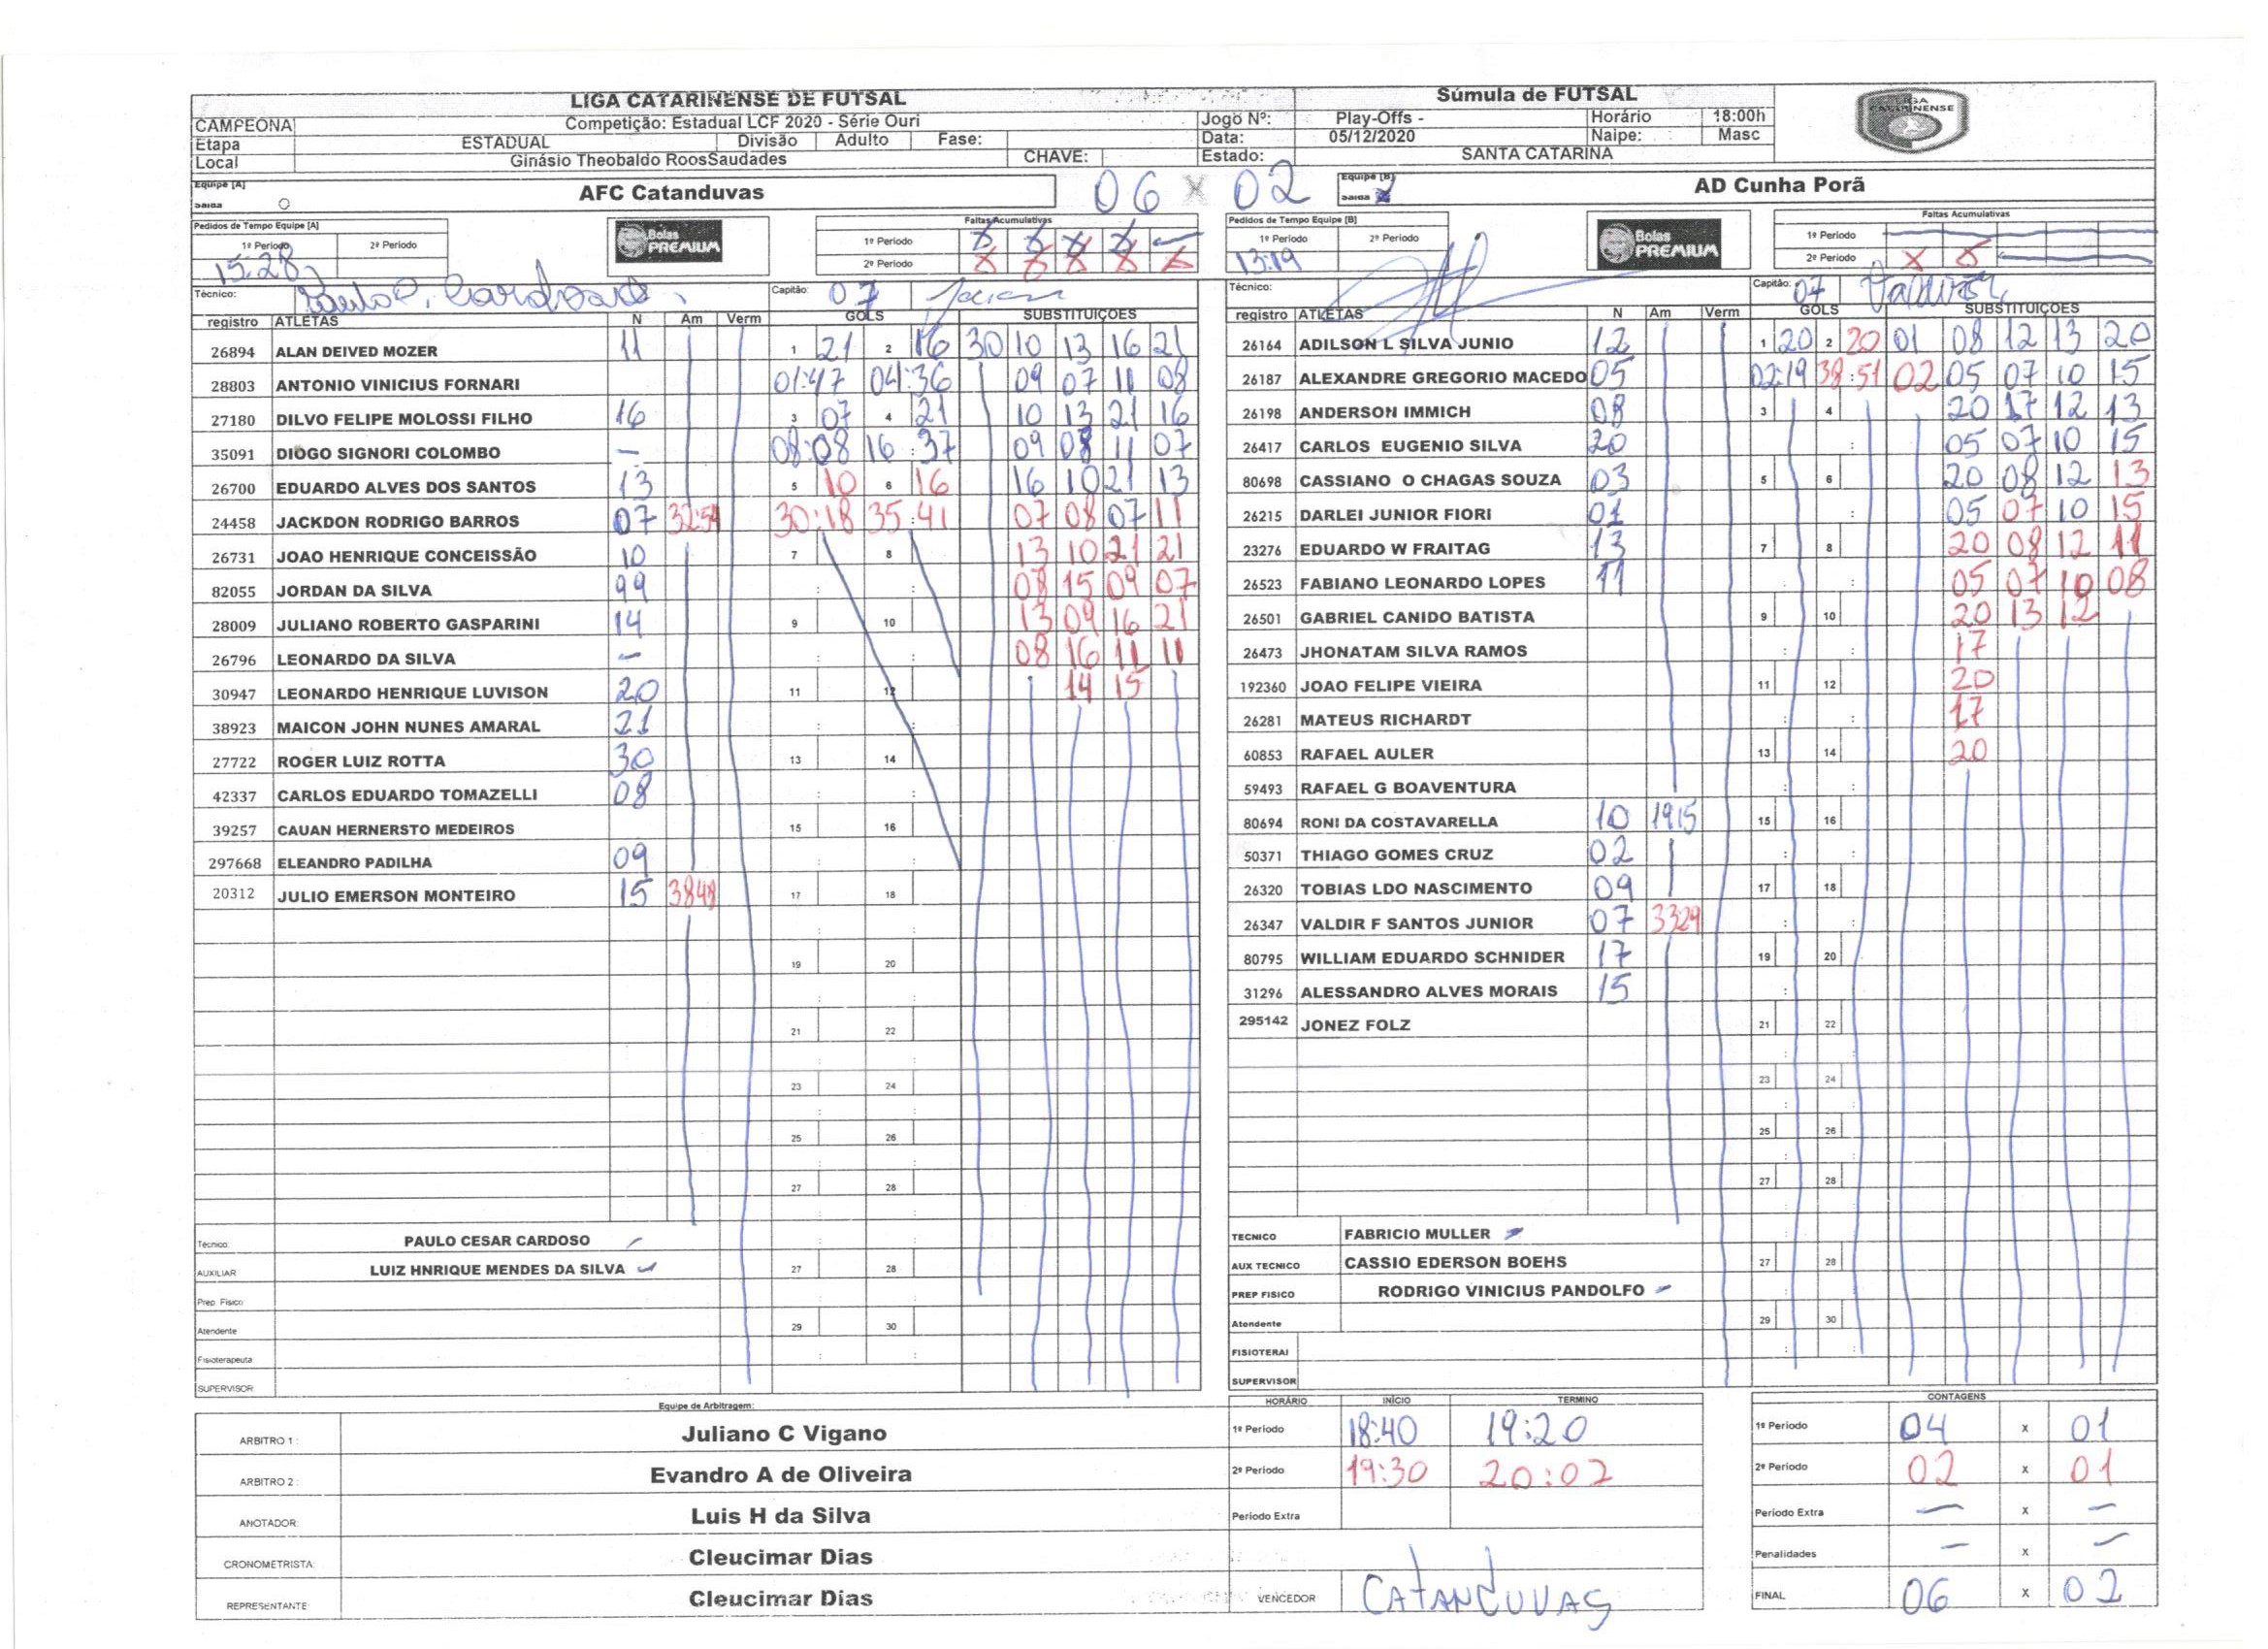 LIGA CATARINENSE DE FUTSAL Súmula de FUTSAL
CAMPEONA Competição: Estadual LCF 2020 - Série Ouri Jogo Nº: Play-Offs - Horário 18:00h
Etapa ESTADUAL Divisão Adulto Fase: Data: 05/12/2020 Naipe: Masc
Local Ginásio Theobaldo RoosSaudades CHAVE: Estado: SANTA CATARINA
LIGA CATARINENSE
Equipe [A] AFC Catanduvas 06 X 02 Equipe [B] AD Cunha Porã
saida O saida
Pedidos de Tempo Equipe [A] Faltas Acumulativas Pedidos de Tempo Equipe [B] Faltas Acumulativas
1º Periodo 2º Periodo Bolas PREMIUM 1º Periodo 1º Periodo 2º Periodo Bolas PREMIUM 1º Periodo
15:28 2º Periodo X X X X X 13:19 2º Periodo X X
Técnico: Paulo C. Cardoso Capitão: 07 Técnico: Capitão: 07
registro ATLETAS N Am Verm GOLS SUBSTITUIÇOES registro ATLETAS N Am Verm GOLS SUBSTITUIÇOES
26894 ALAN DEIVED MOZER 11 1 21 2 16 30 10 13 16 21 26164 ADILSON L SILVA JUNIO 12 1 20 2 20 01 08 12 13 20
28803 ANTONIO VINICIUS FORNARI 01:47 04:36 09 07 11 08 26187 ALEXANDRE GREGORIO MACEDO 05 02:19 38:51 02 05 07 10 15
27180 DILVO FELIPE MOLOSSI FILHO 16 3 07 4 21 10 13 21 16 26198 ANDERSON IMMICH 08 3 4 20 17 12 13
35091 DIOGO SIGNORI COLOMBO — 08:08 16:37 09 08 11 07 26417 CARLOS EUGENIO SILVA 20 05 07 10 15
26700 EDUARDO ALVES DOS SANTOS 13 5 10 6 16 16 10 21 13 80698 CASSIANO O CHAGAS SOUZA 03 5 6 20 08 12 13
24458 JACKDON RODRIGO BARROS 07 32:54 30:18 35:41 07 08 07 11 26215 DARLEI JUNIOR FIORI 01 05 07 10 15
26731 JOAO HENRIQUE CONCEISSÃO 10 7 8 13 10 21 21 23276 EDUARDO W FRAITAG 13 7 8 20 08 12 11
82055 JORDAN DA SILVA 99 08 15 09 07 26523 FABIANO LEONARDO LOPES 11 05 07 10 08
28009 JULIANO ROBERTO GASPARINI 14 9 10 13 09 16 21 26501 GABRIEL CANIDO BATISTA 9 10 20 13 12
26796 LEONARDO DA SILVA — 08 16 11 11 26473 JHONATAM SILVA RAMOS 17
30947 LEONARDO HENRIQUE LUVISON 20 11 12 14 15 192360 JOAO FELIPE VIEIRA 11 12 20
38923 MAICON JOHN NUNES AMARAL 21 26281 MATEUS RICHARDT 17
27722 ROGER LUIZ ROTTA 30 13 14 60853 RAFAEL AULER 13 14 20
42337 CARLOS EDUARDO TOMAZELLI 08 59493 RAFAEL G BOAVENTURA
39257 CAUAN HERNERSTO MEDEIROS 15 16 80694 RONI DA COSTAVARELLA 10 1915 15 16
297668 ELEANDRO PADILHA 09 50371 THIAGO GOMES CRUZ 02
20312 JULIO EMERSON MONTEIRO 15 3848 17 18 26320 TOBIAS LDO NASCIMENTO 09 17 18
26347 VALDIR F SANTOS JUNIOR 07 3329
19 20 80795 WILLIAM EDUARDO SCHNIDER 17 19 20
31296 ALESSANDRO ALVES MORAIS 15
21 22 295142 JONEZ FOLZ 21 22
23 24 23 24
25 26 25 26
27 28 27 28
Técnico: PAULO CESAR CARDOSO TECNICO FABRICIO MULLER
AUXILIAR LUIZ HNRIQUE MENDES DA SILVA 27 28 AUX TECNICO CASSIO EDERSON BOEHS 27 28
Prep. Físico PREP FISICO RODRIGO VINICIUS PANDOLFO
Atendente 29 30 Atendente 29 30
Fisioterapeuta FISIOTERAI
SUPERVISOR SUPERVISOR
Equipe de Arbitragem: HORÁRIO INÍCIO TERMINO CONTAGENS
ARBITRO 1 : Juliano C Vigano 1º Periodo 18:40 19:20 1º Periodo 04 x 01
ARBITRO 2 : Evandro A de Oliveira 2º Periodo 19:30 20:02 2º Periodo 02 x 01
ANOTADOR: Luis H da Silva Periodo Extra Periodo Extra — x —
CRONOMETRISTA: Cleucimar Dias Penalidades — x —
REPRESENTANTE Cleucimar Dias VENCEDOR CATANDUVAS FINAL 06 x 02